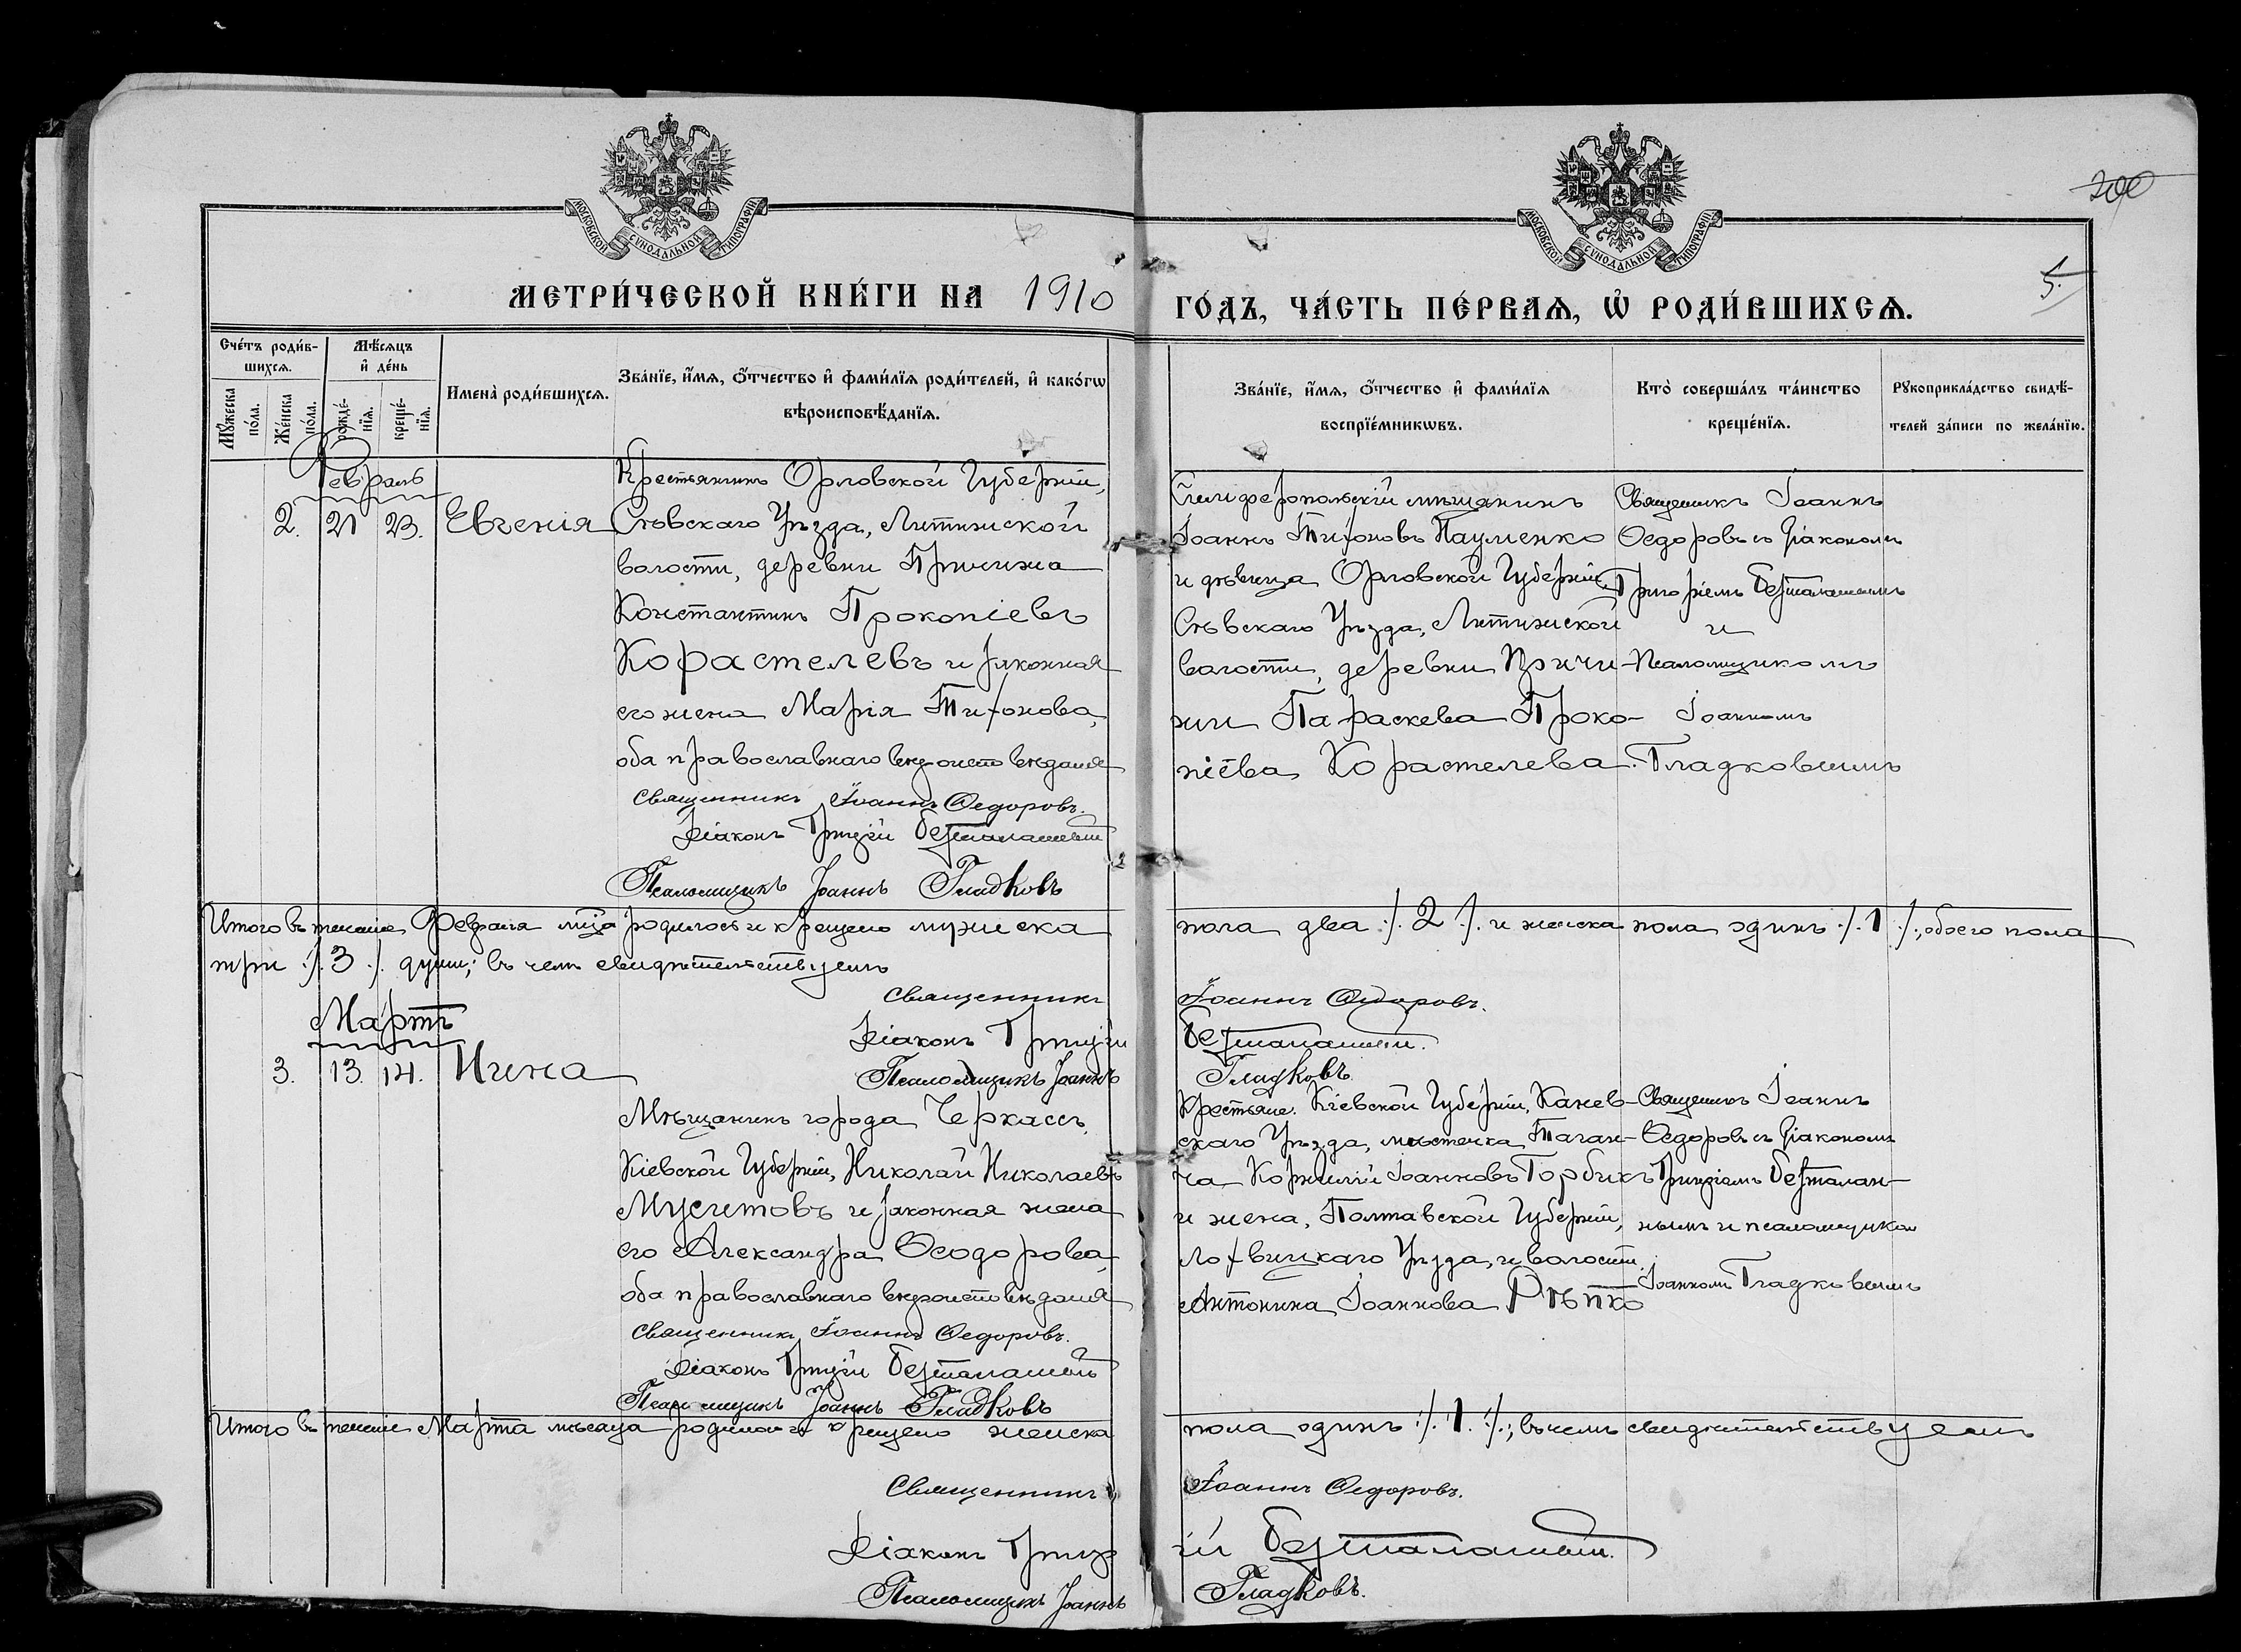 200
5.
МОСКОВСКОЙ СУНОДАЛЬНОЙ ТИПОГРАФІИ
МОСКОВСКОЙ СУНОДАЛЬНОЙ ТИПОГРАФІИ
МЕТРИ́ЧЕСКОЙ КНИ́ГИ НА 1910 ГО́ДЪ, ЧА́СТЬ ПЕ́РВАѦ, Ѡ҆ РОДИ́ВШИХСѦ.
Сче́тъ роди́в-
шихсѧ.
Мꙋ́жеска по́ла.
Же́нска по́ла.
Мѣ́сяцъ
и҆ де́нь
рожде́-нїѧ.
креще́-нїѧ.
И҆мена̀ роди́вшихсѧ.
Зва́нїе, и҆́мѧ, ѻ҆́тчество и҆ фами́лїѧ роди́телей, и҆ како́гѡ
вѣроисповѣ́данїѧ.
Зва́нїе, и҆́мѧ, ѻ҆́тчество и҆ фами́лїѧ
воспрїе́мникѡвъ.
Кто̀ соверша́лъ та́инство
креще́нїѧ.
Рꙋкоприкла́дство свидѣ́-
телей за́писи по жела́нїю.
Февраль
2. 21 23. Евгенія
Крестьянинъ Орловской Губерніи,
Сѣвскаго Уѣзда, Литижской
волости, деревни Причижа
Константинъ Прокопіевъ
Корастелевъ и законная
его жена Марія Тихонова,
оба православнаго вѣроисповѣданія
Священникъ Іоаннъ Ѳедоровъ.
Діаконъ Григорій Безталанный
Псаломщикъ Іоаннъ Гладковъ
Симферопольскій мѣщанинъ
Іоаннъ Тихоновъ Науменко
и дѣвица Орловской Губерніи,
Сѣвскаго Уѣзда, Литижской
волости, деревни Причи-
жи Параскева Проко-
піева Корастелева.
Священникъ Іоаннъ
Ѳедоровъ съ діакономъ
Григоріемъ Безталаннымъ
и
Псаломщикомъ
Іоанномъ
Гладковымъ
Итого въ теченіе Февраля мца родилось и крещено мужеска пола два ./. 2 ./. и женска пола одинъ ./. 1 ./., обоего пола
три ./. 3 ./. души; въ чемъ свидѣтельствуемъ
Священникъ Іоаннъ Ѳедоровъ.
Діаконъ Григорій Безталанный.
Псаломщикъ Іоаннъ Гладковъ.
Мартъ
3. 13. 14. Нина
Мѣщанинъ города Черкассъ,
Кіевской Губерніи, Николай Николаевъ
Мусіитовъ и законная жена
его Александра Ѳеодорова,
оба православнаго вѣроисповѣданія
Священникъ Іоаннъ Ѳедоровъ.
Діаконъ Григорій Безталанный
Псаломщикъ Іоаннъ Гладковъ
Крестьяне: Кіевской Губерніи, Канев-
скаго Уѣзда, мѣстечка Таган-
ча Корнилій Іоанновъ Горбикъ
и жена, Полтавской Губерніи,
Лохвицкаго Уѣзда, и волости,
Антонина Іоаннова Рѣпко
Священникъ Іоаннъ
Ѳедоровъ съ діакономъ
Григоріемъ Безталан-
нымъ и псаломщиком
Іоанномъ Гладковымъ
Итого въ теченіе Марта мѣсяца родилось и крещено женска пола одинъ ./. 1. ./.; въ чемъ свидѣтельствуемъ
Священникъ Іоаннъ Ѳедоровъ.
Діаконъ Григорій Безталанный.
Псаломщикъ Іоаннъ Гладковъ.